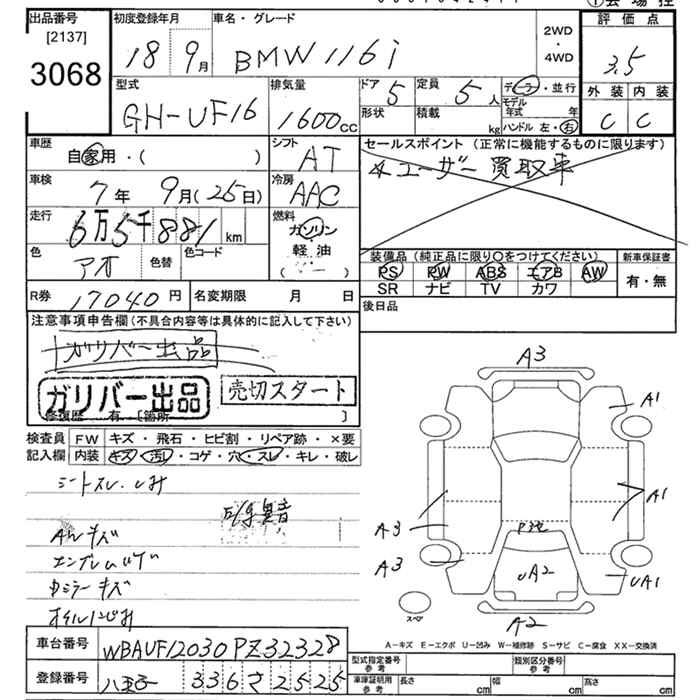 出品番号
[2137]
3068
初度登録年月
18 9月
車名・グレード
BMW 116i
2WD
・
4WD
評価点
3.5
外装 内装
C C
型式
GH-UF16
排気量
1600cc
ドア 5
形状
定員 5人
積載 kg
ディーラー・並行
モデル年式 年
ハンドル 左・右
車歴
自家用・( )
シフト
AT
セールスポイント (正常に機能するものに限ります)
☆ユーザー買取車
車検
7年 9月(25日)
冷房
AAC
走行
6万5千881km
燃料
ガソリン
軽油
( )
色
アオ
色替
色コード
装備品(純正品に限り○をつけてください)
PS PW ABS エアB AW
SR ナビ TV カワ
新車保証書
有・無
R券 17040円
名変期限 月 日
後日品
注意事項申告欄(不具合内容等は具体的に記入して下さい)
ガリバー出品
ガリバー出品
売切スタート
修復歴 有 [箇所 ]
検査員
記入欄
FW キズ・飛石・ヒビ割・リペア跡・×要
内装 キズ・汚レ・コゲ・穴・スレ・キレ・破レ
シートスレ、しみ
異音
AWキズ
エンブレム
ミラーキズ
A3
A1
A3
A1
A3
A2
A1
A2
スペア
A-キズ E-エクボ U-凹み W-補修跡 S-サビ C-腐食 XX-交換済
車台番号
WBAUF12030PZ32328
登録番号
八王子 336さ2525
型式指定番号
参考
類別区分番号
参考
車庫証明用
参考
長さ cm
幅 cm
高さ cm